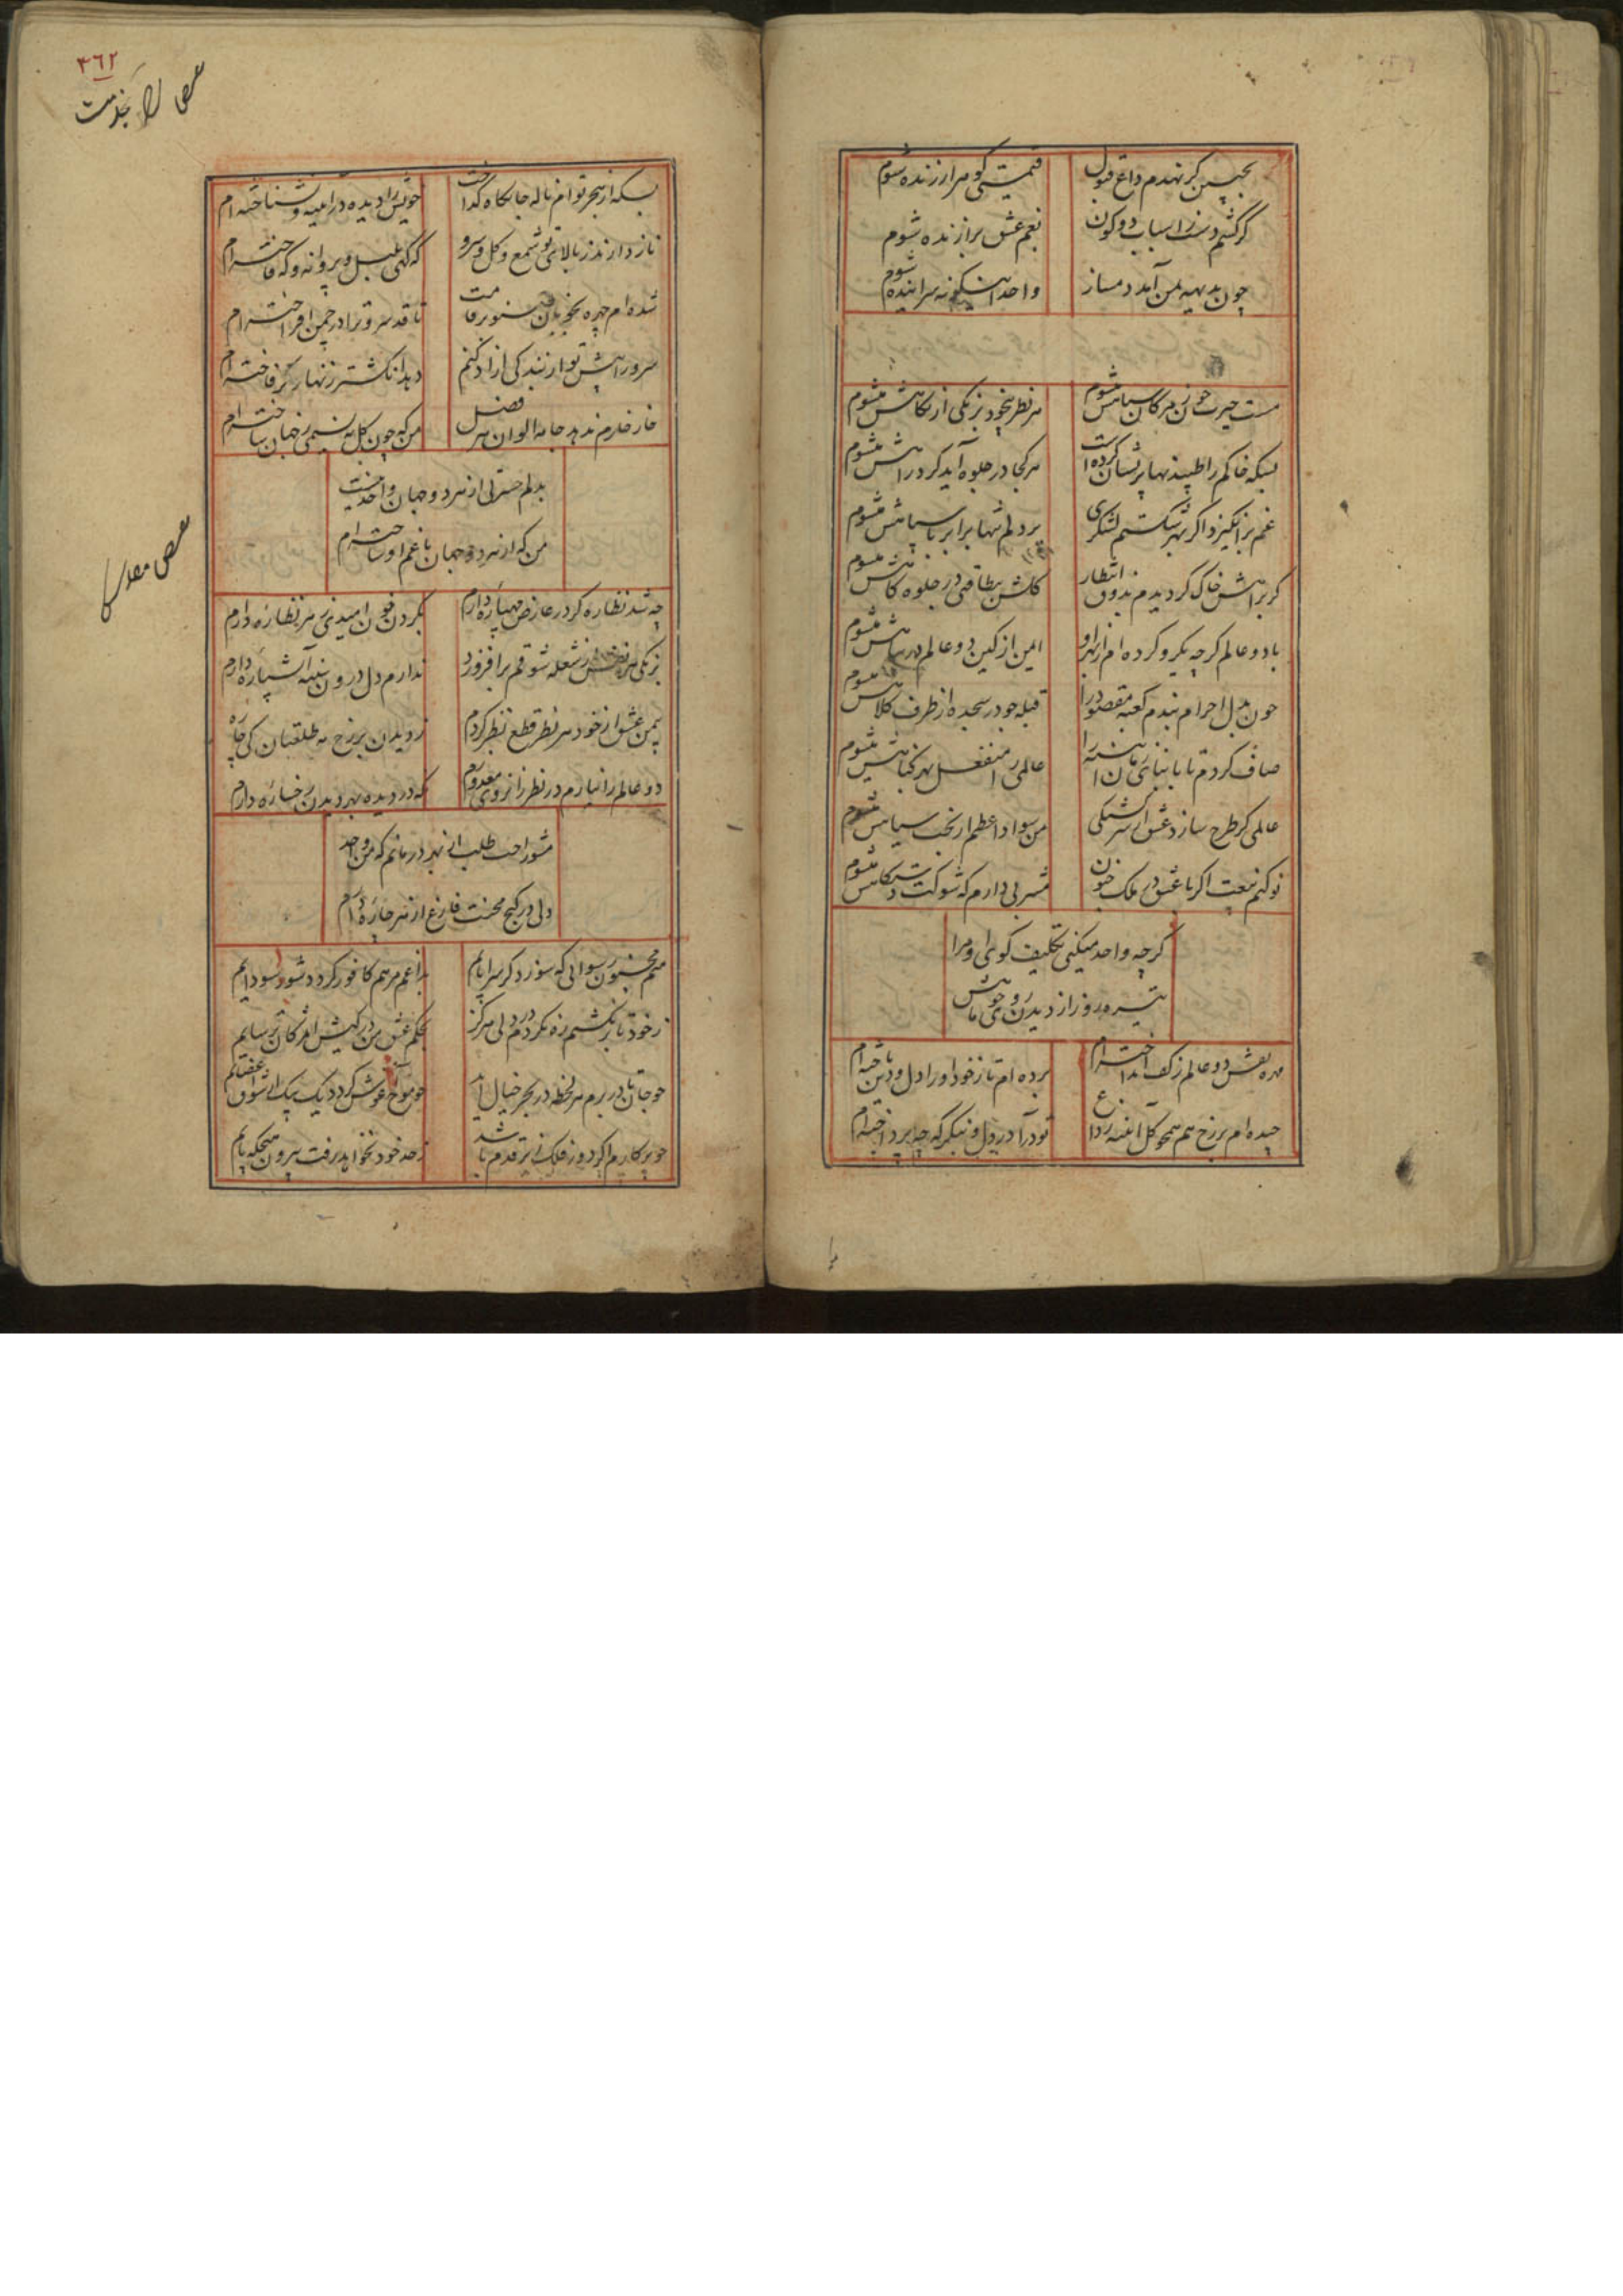 بجبین گر نهدم داغ قبول
قیمتی گوهر ارزنده شوم
گر کشم دست ز اسباب دو کون
بغم عشق برازنده شوم
چون بدیهه بمن آید دمساز
واحد اینگونه سراینده شوم
مست حیرت چون ز مژگان سیاهش میشوم
هر نظر بیخود برنگی از نگاهش میشوم
بسکه خاکم را طپیدنها پریشان کرده است
هر کجا در جلوه آید گرد راهش میشوم
غم برانگیزد اگر بهر شکستم لشکری
بر دلم تنها برابر با سپاهش میشوم
گر براهش خاک گردیدم بذوق انتظار
گلشن بیطاقتی در جلوه گاهش میشوم
با دو عالم گرچه یکرو کرده ام از بهر او
ایمن از کین دو عالم در پناهش میشوم
چون بدل احرام بندم کعبه مقصود را
قبله جو در سجده از طرف کلاهش میشوم
صاف کردم تا بابنای زمان آن سینه را
عالمی را منفعل بهر گناهش میشوم
عالمی گر طرح سازد عشق از سرگشتگی
من سواد اعظم از بخت سیاهش میشوم
نو کنم بیعت اگر با عشق در ملک جنون
مشربی دارم که شوکت دستگاهش میشوم
گرچه واحد میکنی تکلیف کوی او مرا
تیره روز از دیدن روی چو ماهش میشوم
مهره نقش دو عالم ز کف انداخته ام
برده ام تا ز خود او را دل و دین باخته ام
چیده ام برزخ هم همچو گل آئینه زداغ
تو درآ در دل و بنگر که چه پرداخته ام
۳۶۲
بسکه از هجر توام ناله جانکاه گداخت
خویش را دیده در آئینه و نشناخته ام
ناز دارند ز بالای تو شمع و گل و سرو
که گهی بلبل و پروانه و گه فاخته ام
شده ام چهره بخوبان صنوبر قامت
تا قد سرو ترا در چمن افراخته ام
سرو را پیش تو از بندگی آزاد کنم
دهد انگشتر زنهار گر فاخته ام
خار خارم ندهد جامه الوان هر فصل
من که چون گل به نسیمی ز جهان ساخته ام
بدلم حسرتی از هر دو جهان واحد نیست
من که از هر دو جهان با غم او ساخته ام
چه شد نظاره گر در عارض مهپاره دارم
بگردن خون امیدی هر نظاره دارم
برنگی هر نفس از شعله شوقم برافروزد
ندارم دل درون سینه آتشپاره دارم
بیمن عشق از خود هر نظر قطع نظر کردم
ز دیدن برزخ مه طلعتان کی چاره
دو عالم را نیارم در نظر زانرو که معذورم
که در دیده بهر دیدن رخساره دارم
مشو راحت طلب از بهر درمانم که من واحد
دلی در کنج محنت فارغ از هر چاره دارم
منم مجنون رسوائی که سوزد گر سراپایم
بداغم مرهم کافور گردد شور سودایم
ز خود تا برنگشتم ره نکردم در دلی هرگز
بحکم عشق من در کیش
چو جانان در برم هر لحظه در بحر خیال آید
چو پرگارم اگر دور فلک زیر قدم باشد
ز حد خود نخواهد رفت بیرون هیچگه پایم